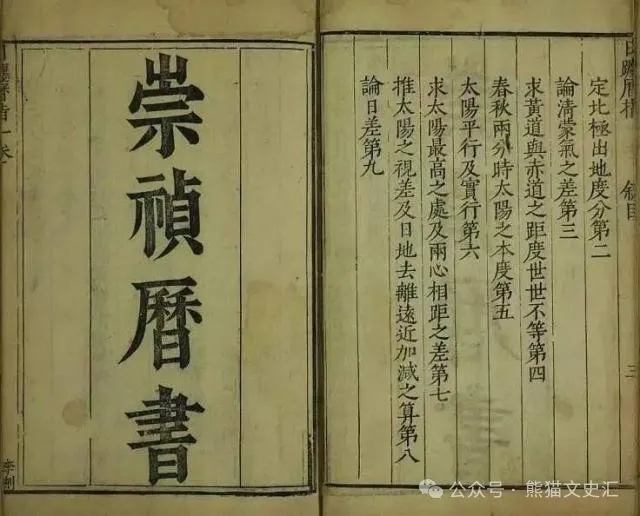 日躔曆指
三
定北極出地度分第二
論清蒙氣之差第三
求黃道與赤道之距度世世不等第四
春秋兩分時太陽之本度第五
太陽平行及實行第六
求太陽最高之處及兩心相距之差第七
推太陽之視差及日地去離遠近加減之算第八
論日差第九
崇禎曆書
公众号·熊猫文史汇